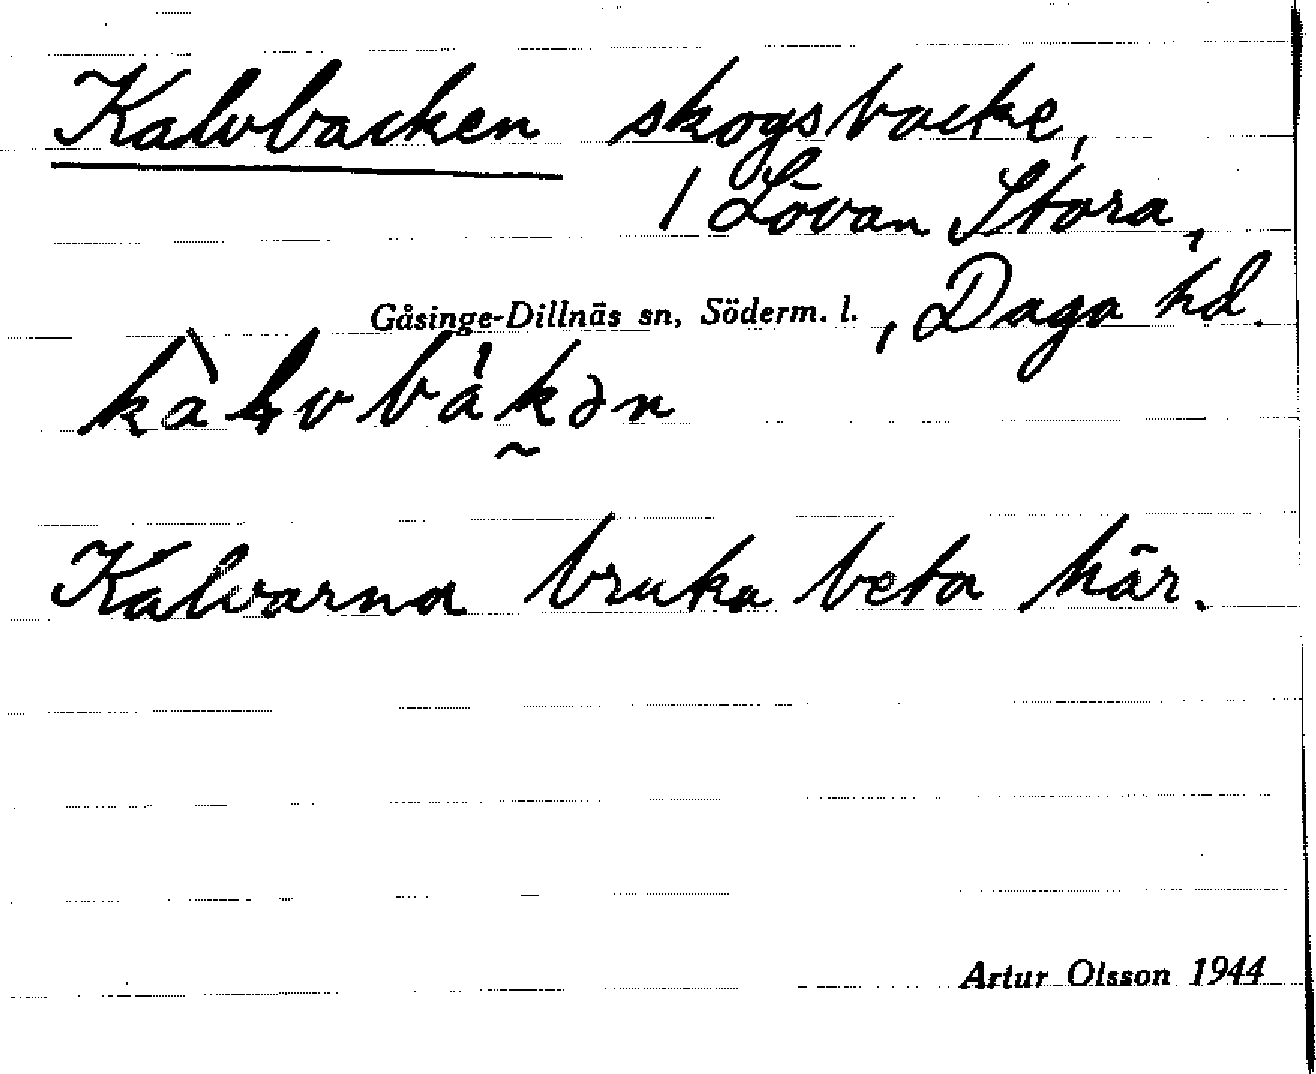 Kalvbacken skogsbacke,
/ Lövan Stora,
Gåsinge-Dillnäs sn, Söderm. l. , Daga hd.
Kalvarna bruka beta här.
Artur Olsson 1944